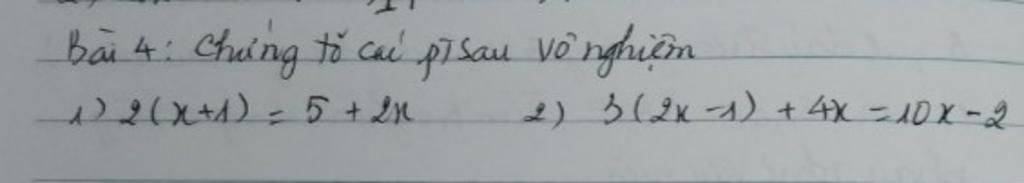 Bài 4: Chứng tỏ các pt sau vô nghiệm
1) 2(x+1) = 5 + 2x 2) 3(2x -1) + 4x = 10x - 2